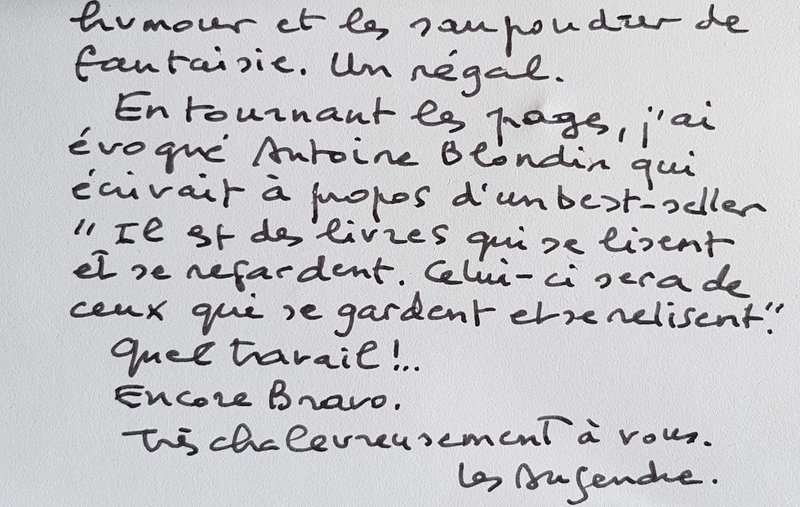 humour et les saupoudrer de
fantaisie. Un régal.
En tournant les pages, j'ai
évoqué Antoine Blondin qui
écrivait à propos d'un best-seller
"Il est des livres qui se lisent
et se regardent. Celui-ci sera de
ceux qui se gardent et se relisent".
Quel travail!..
Encore Bravo.
Très chaleureusement à vous.
Les Augendre.